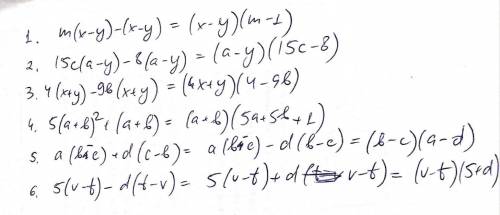 1. m(x-y)-(x-y) = (x-y)(m-1)
2. 15c(a-y)-8(a-y) = (a-y)(15c-8)
3. 4(x+y)-9b(x+y) = (4x+y)(4-9b)
4. 5(a+b)²+(a+b) = (a+b)(5a+5b+1)
5. a(b-c)+d(c-b) = a(b-c)-d(b-c) = (b-c)(a-d)
6. 5(v-t)-d(t-v) = 5(v-t)+d(v-t) = (v-t)(5+d)